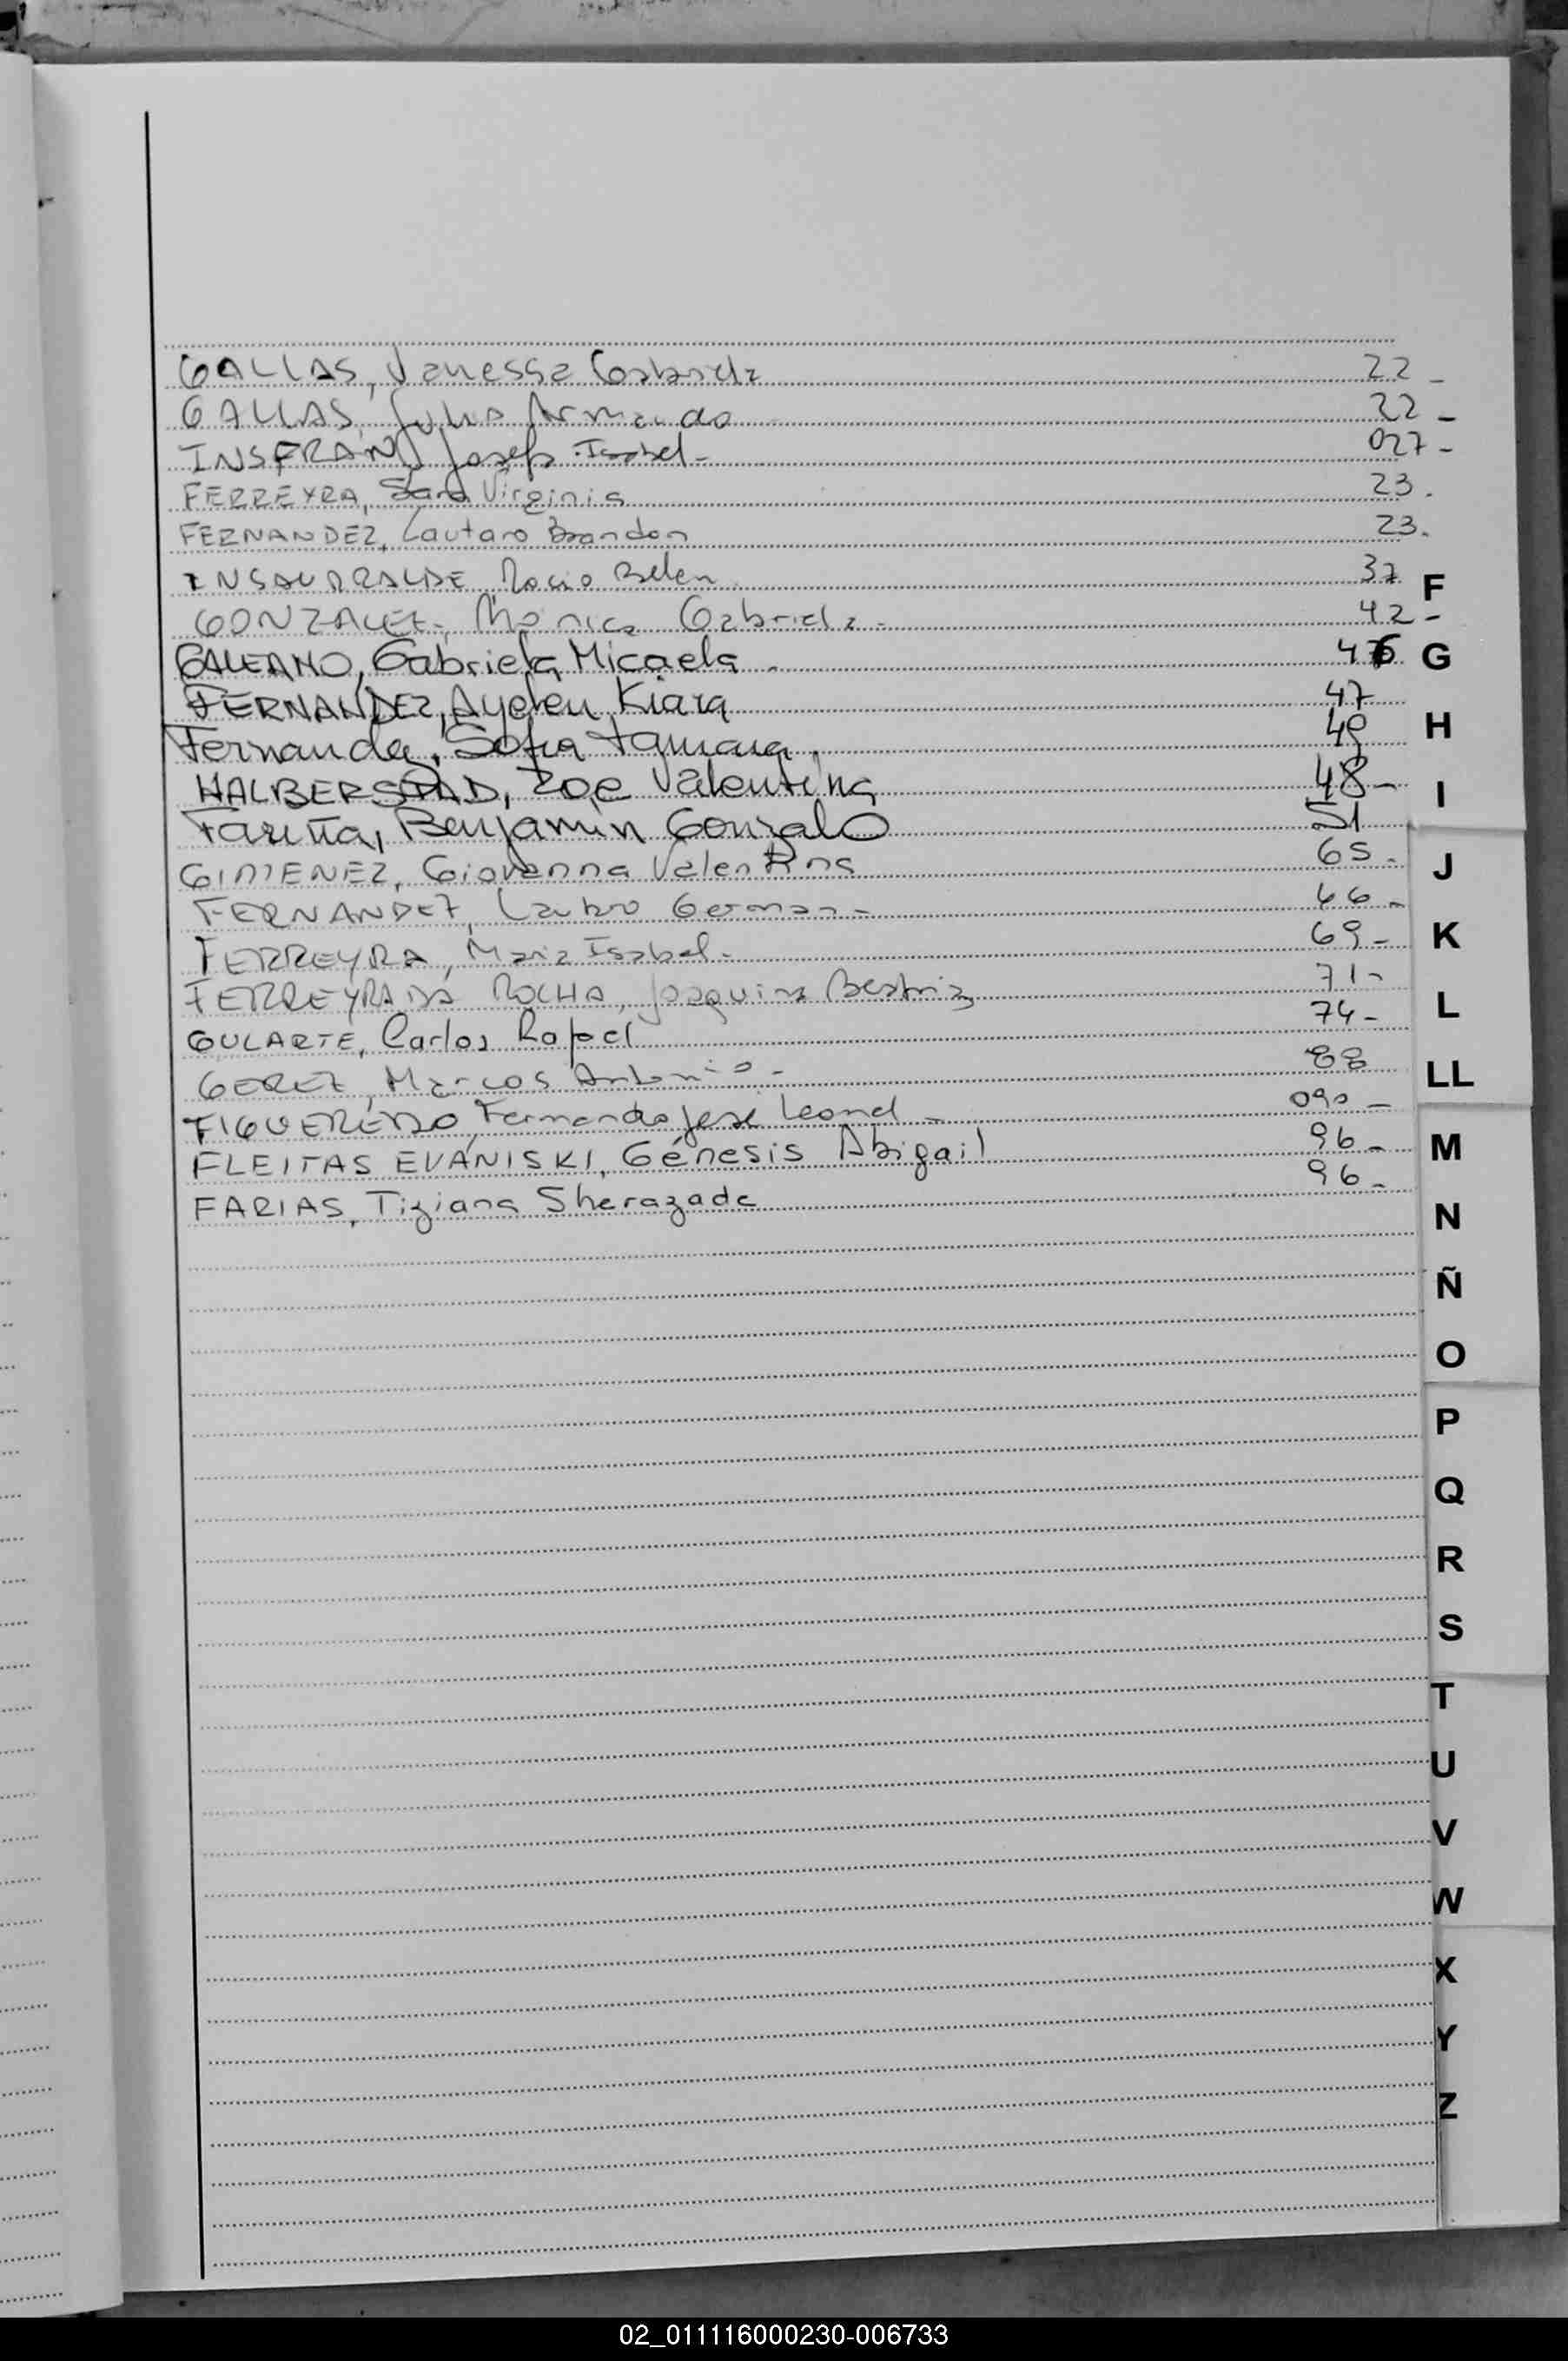 GALLAS, Vanessa Gabriela 22 -
GALLAS, Julio Armando 22 -
INSFRAN, Josefa Isabel - 027 -
FERREYRA, Sara Virginia 23.
FERNANDEZ, Lautaro Brandon 23.
INSAURRALDE, Rocio Belen 37
GONZALEZ, Monica Gabriela - 42 -
GALEANO, Gabriela Micaela - 46
FERNANDEZ, Ayelen Kiara 47
Fernandez, Sofia Tamara. 49
HALBERSTAD, Zoe Valentina 48 -
Fariña, Benjamin Gonzalo 51
GIMENEZ, Giovanna Valentina 65 -
FERNANDEZ, Lautaro German - 66 -
FERREYRA, Maria Isabel - 69 -
FERREYRA DA ROCHA, Joaquina Beatriz 71 -
GULARTE, Carlos Rafael 74 -
GEREZ, Marcos Antonio - 88
FIGUEREDO, Fernando José Leonel - 090 -
FLEITAS EVANISKI, Génesis Abigail 96 -
FARIAS, Tiziana Sherazade 96 -
F
G
H
I
J
K
L
LL
M
N
Ñ
O
P
Q
R
S
T
U
V
W
X
Y
Z
02_011116000230-006733